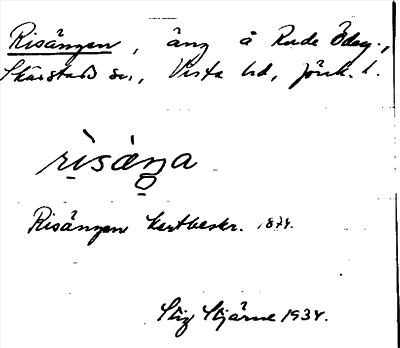 Risängen, äng å Rude Ödeg.,
Skärstads sn., Vista hd, Jönk. l.
rìsàŋa
Risängen Kartbeskr. 1874.
Stig Stjärne 1934.